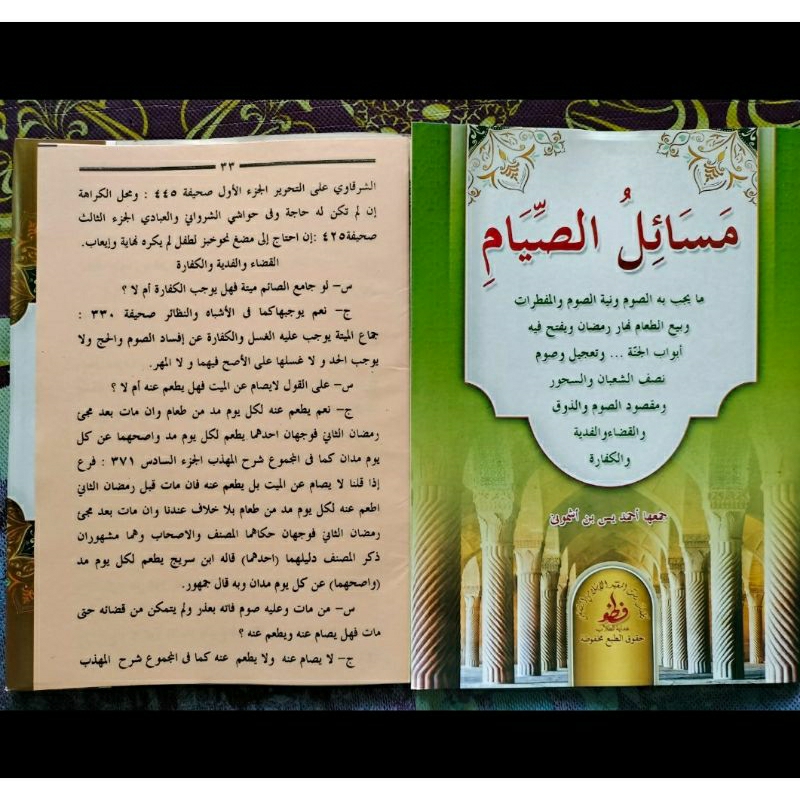 ٣٣
الشرقاوي على التحرير الجزء الأول صحيفة ٤٤٥ : ومحل الكراهة
إن لم تكن له حاجة وفى حواشي الشرواني والعبادي الجزء الثالث
صحيفة٤٢٥ :إن احتاج إلى مضغ نحوخبز لطفل لم يكره نهاية وإيعاب.
القضاء والفدية والكفارة
س– لو جامع الصائم ميتة فهل يوجب الكفارة أم لا ؟
ج– نعم يوجبهاكما فى الأشباه والنظائر صحيفة ٣٣٠ :
جماع الميتة يوجب عليه الغسل والكفارة عن إفساد الصوم والحج ولا
يوجب الحد و لا غسلها على الأصح فيهما و لا المهر.
س– على القول لايصام عن الميت فهل يطعم عنه أم لا ؟
ج– نعم يطعم عنه لكل يوم مد من طعام وان مات بعد مجئ
رمضان الثاني فوجهان احدهما يطعم لكل يوم مد واصحهما عن كل
يوم مدان كما فى المجموع شرح المهذب الجزء السادس ٣٧١ : فرع
إذا قلنا لا يصام عن الميت بل يطعم عنه فان مات قبل رمضان الثاني
اطعم عنه لكل يوم مد من طعام بلا خلاف عندنا وان مات بعد مجئ
رمضان الثاني فوجهان حكاهما المصنف والاصحاب وهما مشهوران
ذكر المصنف دليلهما (احدهما) قاله ابن سريج يطعم لكل يوم مد
(واصحهما) عن كل يوم مدان وبه قال جمهور.
س– من مات وعليه صوم فاته بعذر ولم يتمكن من قضائه حتى
مات فهل يصام عنه ويطعم عنه ؟
ج– لا يصام عنه ولا يطعم عنه كما فى المجموع شرح المهذب
مَسَائِلُ الصِّيَامِ
ما يجب به الصوم ونية الصوم والمفطرات
وبيع الطعام نهار رمضان ويفتح فيه
أبواب الجنّة ... وتعجيل وصوم
نصف الشعبان والسحور
ومقصود الصوم والذوق
والقضاءوالفدية
والكفارة
جمعها أحمد يس بن أشموني
حقوق الطبع محفوظة